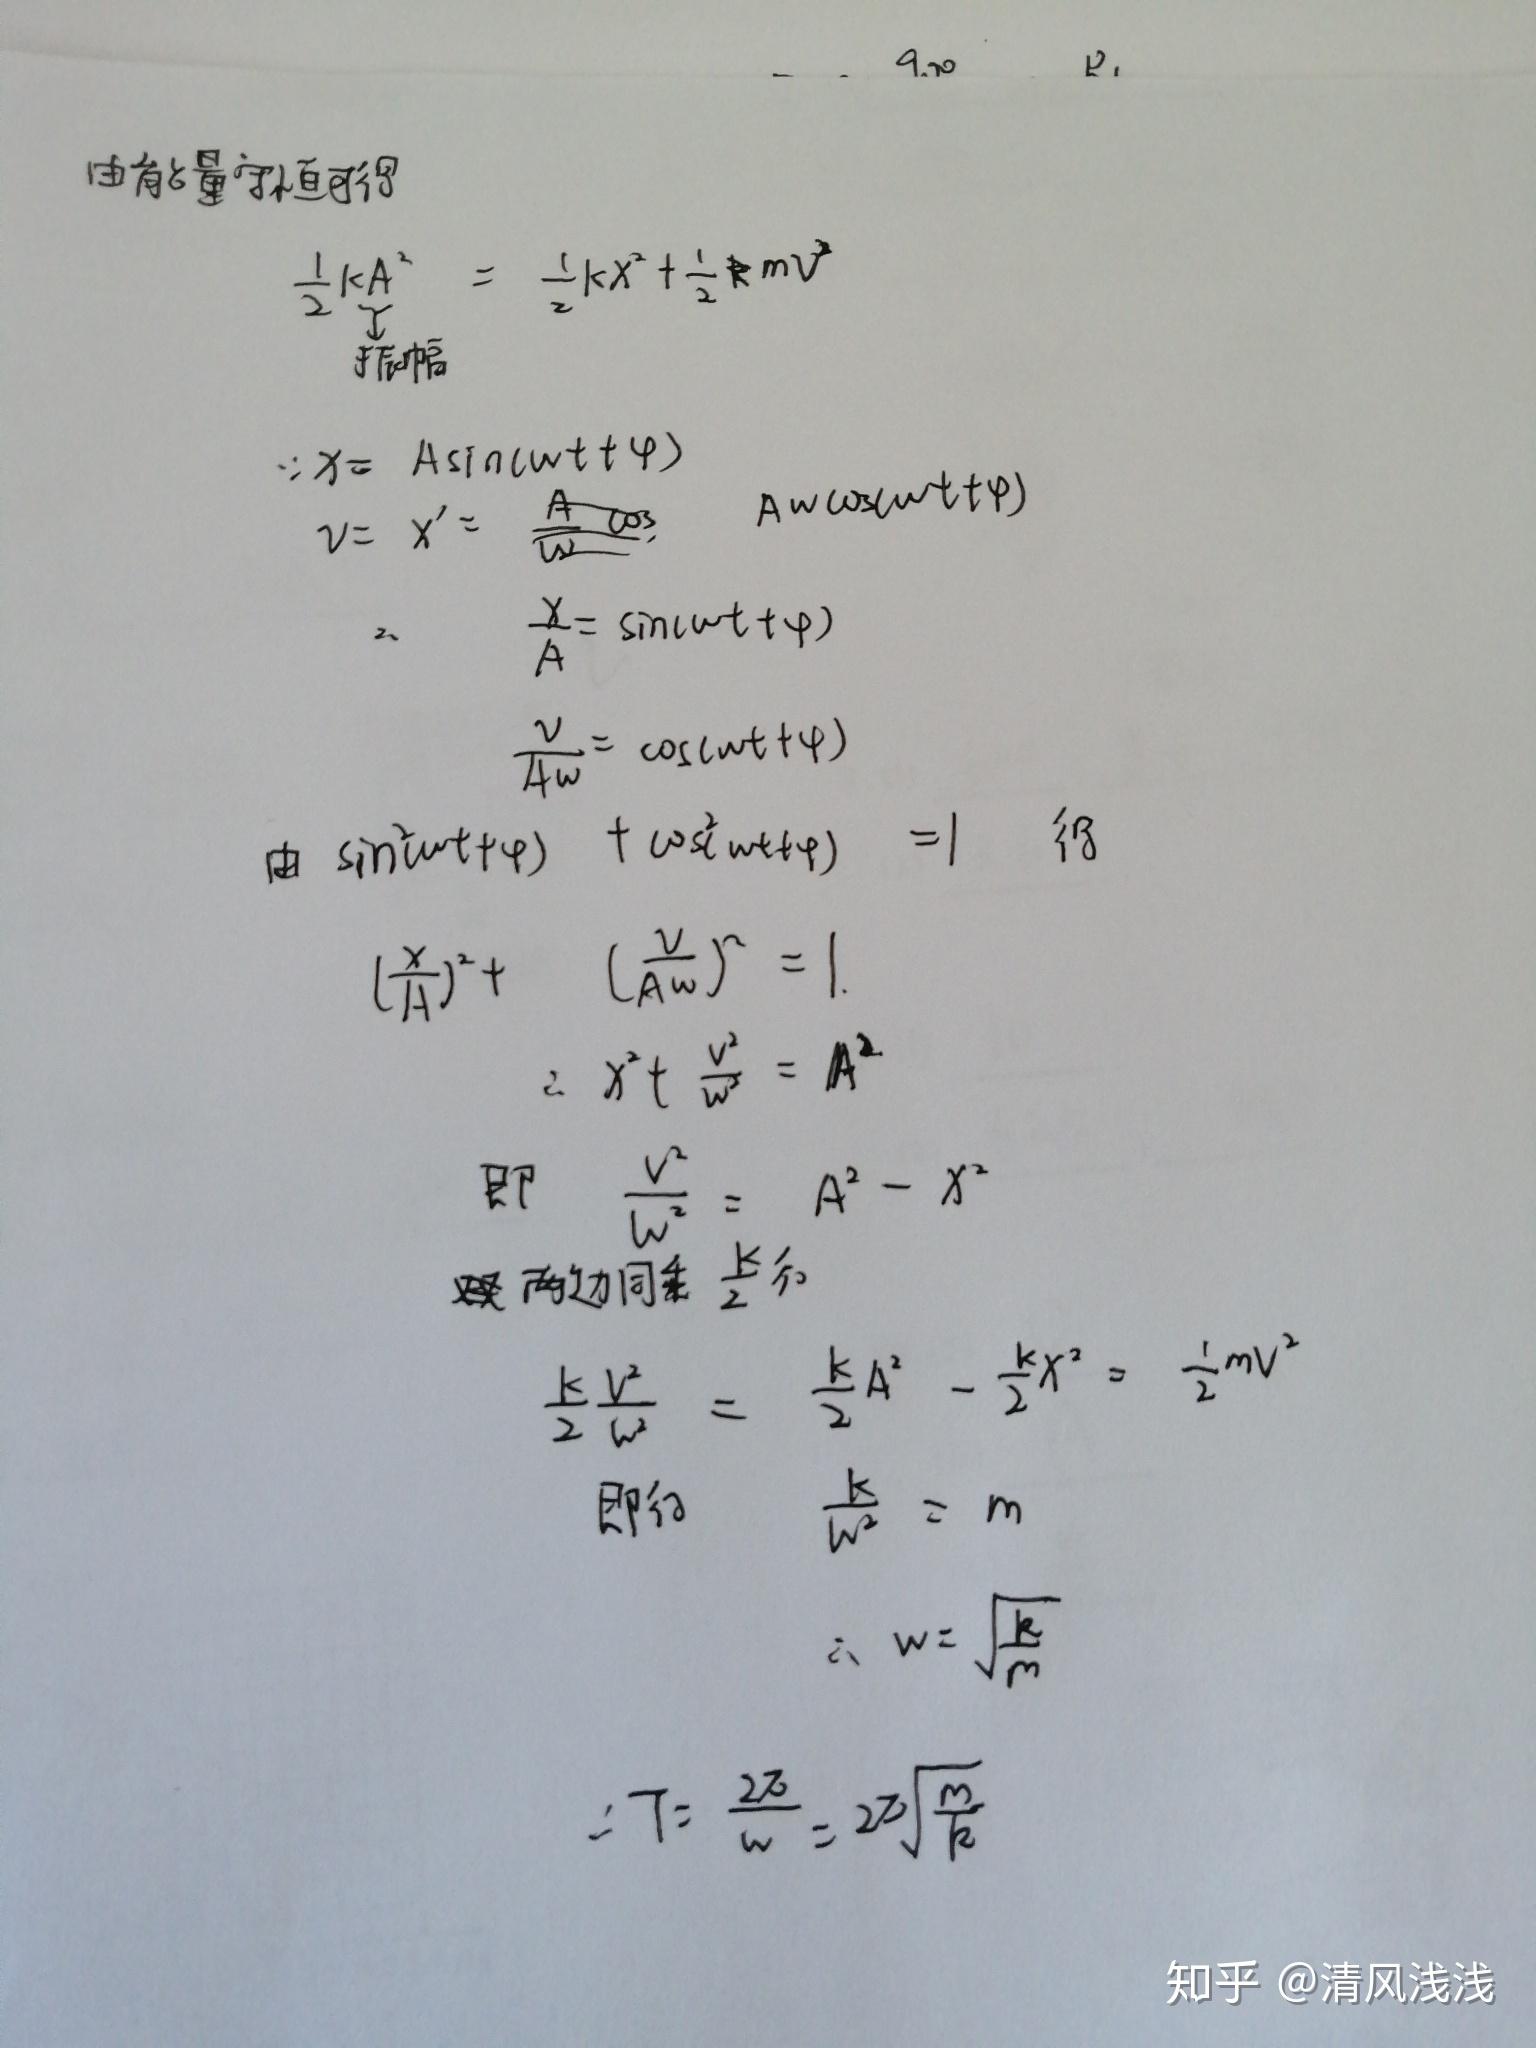 由能量守恒可得
½kA² = ½kx² + ½mv²
振幅
∵ x = Asin(wt+φ)
v = x' = Awcos(wt+φ)
∴ x/A = sin(wt+φ)
v/Aw = cos(wt+φ)
由 sin²(wt+φ) + cos²(wt+φ) = 1 得
(x/A)² + (v/Aw)² = 1.
∴ x² + v²/w² = A²
即 v²/w² = A² - x²
两边同乘 k/2 得
k/2 v²/w² = k/2 A² - k/2 x² = ½mv²
即得 k/w² = m
∴ w = √(k/m)
∴ T = 2π/w = 2π√(m/k)
知乎 @清风浅浅